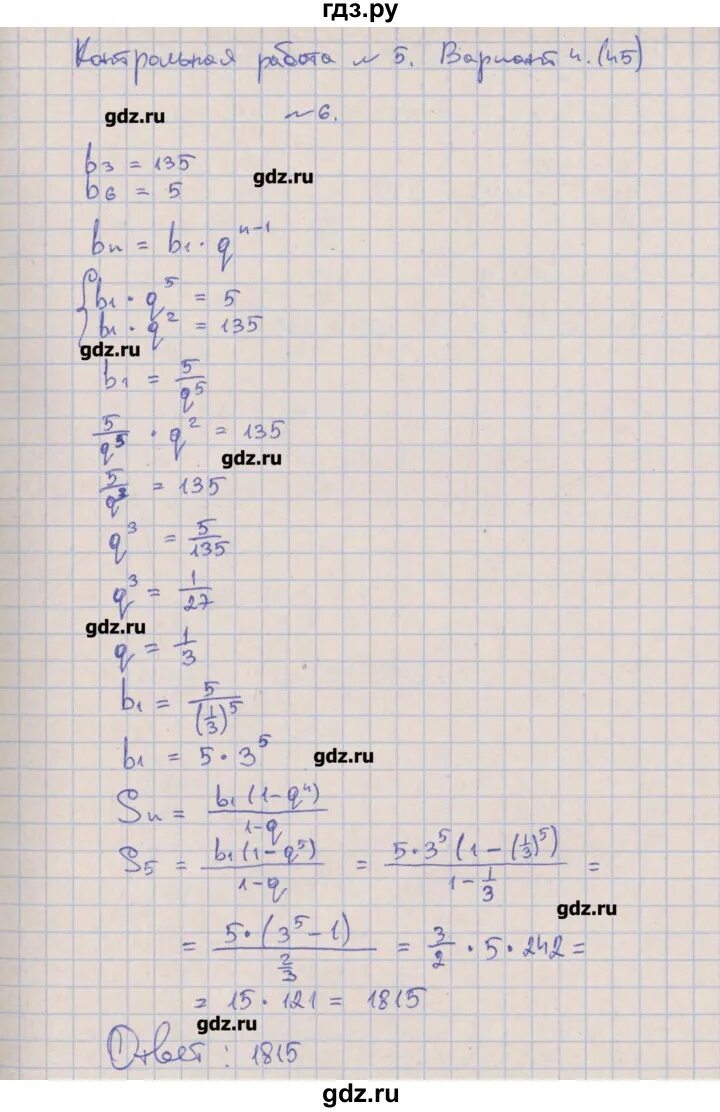 гдз.ру
Контрольная работа № 5. Вариант 4. (45)
gdz.ru
№ 6.
b₃ = 135
gdz.ru
b₆ = 5
bₙ = b₁ · qⁿ⁻¹
{ b₁ · q⁵ = 5
b₁ · q² = 135
gdz.ru
b₁ = 5/q⁵
5/q⁵ · q² = 135
gdz.ru
5/q³ = 135
q³ = 5/135
q³ = 1/27
gdz.ru
q = 1/3
b₁ = 5/(1/3)⁵
b₁ = 5 · 3⁵
gdz.ru
Sₙ = b₁(1-qⁿ)/1-q
S₅ = b₁(1-q⁵)/1-q = 5·3⁵(1-(1/3)⁵)/1-1/3 =
gdz.ru
= 5·(3⁵-1)/(2/3) = 3/2 · 5 · 242 =
= 15 · 121 = 1815
gdz.ru
Ответ : 1815
gdz.ru